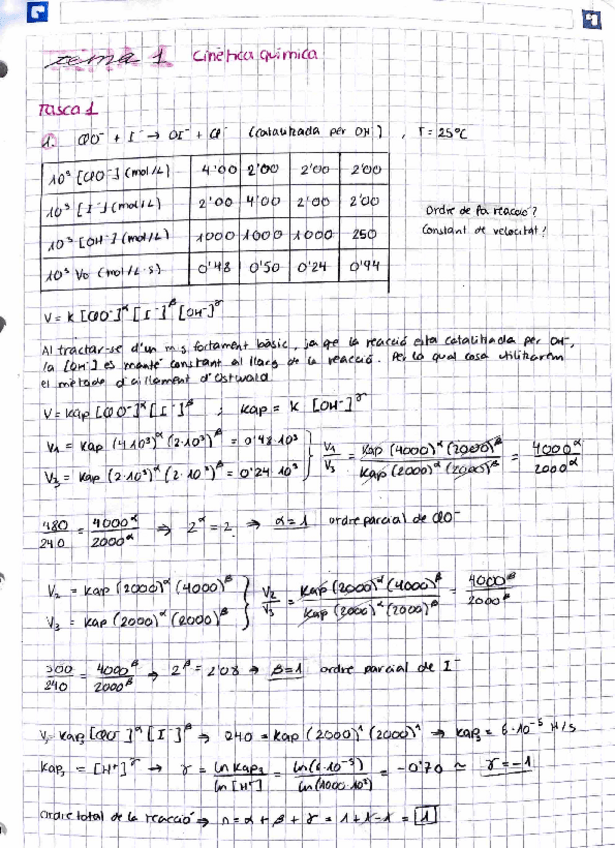 Tema 1 Cinètica química
Tasca 1
1. ClO⁻ + I⁻ → OI⁻ + Cl⁻ (catalitzada per OH⁻), T = 25°C
10³ [ClO⁻] (mol/L) 4'00 2'00 2'00 2'00
10³ [I⁻] (mol/L) 2'00 4'00 2'00 2'00
10³ [OH⁻] (mol/L) 1000 1000 1000 250
10³ V₀ (mol/L·s) 0'48 0'50 0'24 0'94
Ordre de la reacció?
Constant de velocitat?
V = K [ClO⁻]^α [I⁻]^β [OH⁻]^γ
Al tractar-se d'un m.s fortament bàsic, ja que la reacció esta catalitzada per OH⁻,
la [OH⁻] es manté constant al llarg de la reacció. Per la qual cosa utilitzarem
el mètode d'aïllament d'Ostwald
V = Kap [ClO⁻]^α [I⁻]^β ; Kap = K [OH⁻]^γ
V₁ = Kap (4·10³)^α (2·10³)^β = 0'48·10³
V₃ = Kap (2·10³)^α (2·10³)^β = 0'24·10³
V₁/V₃ = Kap (4000)^α (2000)^β / Kap (2000)^α (2000)^β = 4000^α / 2000^α
480/240 = 4000^α / 2000^α ⇒ 2^α = 2 ⇒ α = 1 ordre parcial de ClO⁻
V₂ = Kap (2000)^α (4000)^β
V₃ = Kap (2000)^α (2000)^β
V₂/V₃ = Kap (2000)^α (4000)^β / Kap (2000)^α (2000)^β = 4000^β / 2000^β
500/240 = 4000^β / 2000^β → 2^β = 2'08 → β = 1 ordre parcial de I⁻
V₃ = Kap₃ [ClO⁻]^α [I⁻]^β → 240 = Kap (2000)¹ (2000)¹ → Kap₃ = 6·10⁻⁵ M/s
Kap₃ = [H⁺]^γ → γ = ln Kap₃ / ln [H⁺] = ln(6·10⁻⁵) / ln(1000·10³) = -0'70 ≈ γ = -1
Ordre total de la reacció → n = α + β + γ = 1 + 1 - 1 = 1